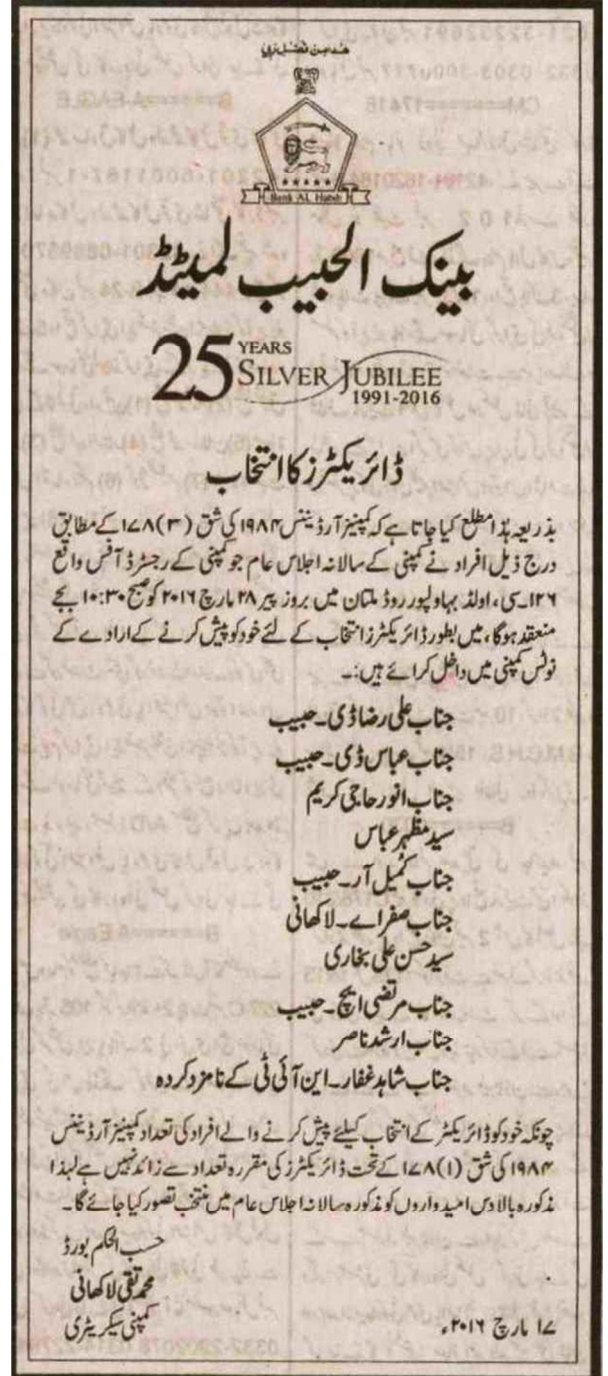 ھذا من فضل ربی
Bank AL Habib
بینک الحبیب لمیٹڈ
25 YEARS
SILVER JUBILEE
1991-2016
ڈائریکٹرز کا انتخاب
بذریعہ ہٰذا مطلع کیا جاتا ہے کہ کمپنیز آرڈیننس ۱۹۸۴ کی شق (۳) ۱۷۸ کے مطابق
درج ذیل افراد نے کمپنی کے سالانہ اجلاس عام جو کمپنی کے رجسٹرڈ آفس واقع
۱۲۶۔سی، اولڈ بہاولپور روڈ ملتان میں بروز پیر ۲۸ مارچ ۲۰۱۶ کو صبح ۱۰:۳۰ بجے
منعقد ہوگا، میں بطور ڈائریکٹرز انتخاب کے لئے خود کو پیش کرنے کے ارادے کے
نوٹس کمپنی میں داخل کرائے ہیں:۔
جناب علی رضا ڈی۔حبیب
جناب عباس ڈی۔حبیب
جناب انور حاجی کریم
سید مظہر عباس
جناب کمیل آر۔حبیب
جناب صفر اے۔لاکھانی
سید حسن علی بخاری
جناب مرتضی ایچ۔حبیب
جناب ارشد ناصر
جناب شاہد غفار۔این آئی ٹی کے نامزد کردہ
چونکہ خود کو ڈائریکٹر کے انتخاب کیلئے پیش کرنے والے افراد کی تعداد کمپنیز آرڈیننس
۱۹۸۴ کی شق (۱) ۱۷۸ کے تحت ڈائریکٹرز کی مقررہ تعداد سے زائد نہیں ہے لہٰذا
مذکورہ بالا دس امیدواروں کو مذکورہ سالانہ اجلاس عام میں منتخب تصور کیا جائے گا۔
حسب الحکم بورڈ
محمد تقی لاکھانی
کمپنی سیکریٹری
۱۷ مارچ ۲۰۱۶ء